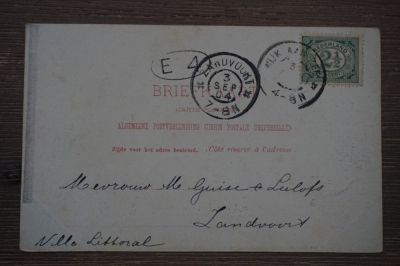 E 4
ZANDVOORT
3
SEP
04
7-8N
4-8N
NEDERLAND
2½
BRIEFKAART
ALGEMEENE POSTVEREENIGING (UNION POSTALE UNIVERSELLE)
Zijde voor het adres bestemd. (Côté réservé à l'adresse.
Mevrouw M Guise & Lulofs
Zandvoort
Villa Littoral